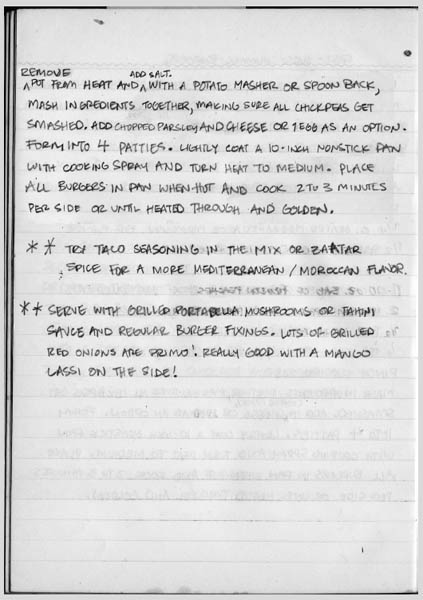 REMOVE ADD SALT.
^POT FROM HEAT AND ^ WITH A POTATO MASHER OR SPOON BACK,
MASH INGREDIENTS TOGETHER, MAKING SURE ALL CHICKPEAS GET
SMASHED. ADD CHOPPED PARSLEY AND CHEESE OR 1 EGG AS AN OPTION.
FORM INTO 4 PATTIES. LIGHTLY COAT A 10-INCH NONSTICK PAN
WITH COOKING SPRAY AND TURN HEAT TO MEDIUM. PLACE
ALL BURGERS IN PAN WHEN HOT AND COOK 2 TO 3 MINUTES
PER SIDE OR UNTIL HEATED THROUGH AND GOLDEN.
** TRY TACO SEASONING IN THE MIX OR ZA'ATAR
SPICE FOR A MORE MEDITERRANEAN / MOROCCAN FLAVOR.
** SERVE WITH GRILLED PORTABELLA MUSHROOMS OR TAHINI
SAUCE AND REGULAR BURGER FIXINGS. LOTS OF GRILLED
RED ONIONS ARE PRIMO! REALLY GOOD WITH A MANGO
LASSI ON THE SIDE!